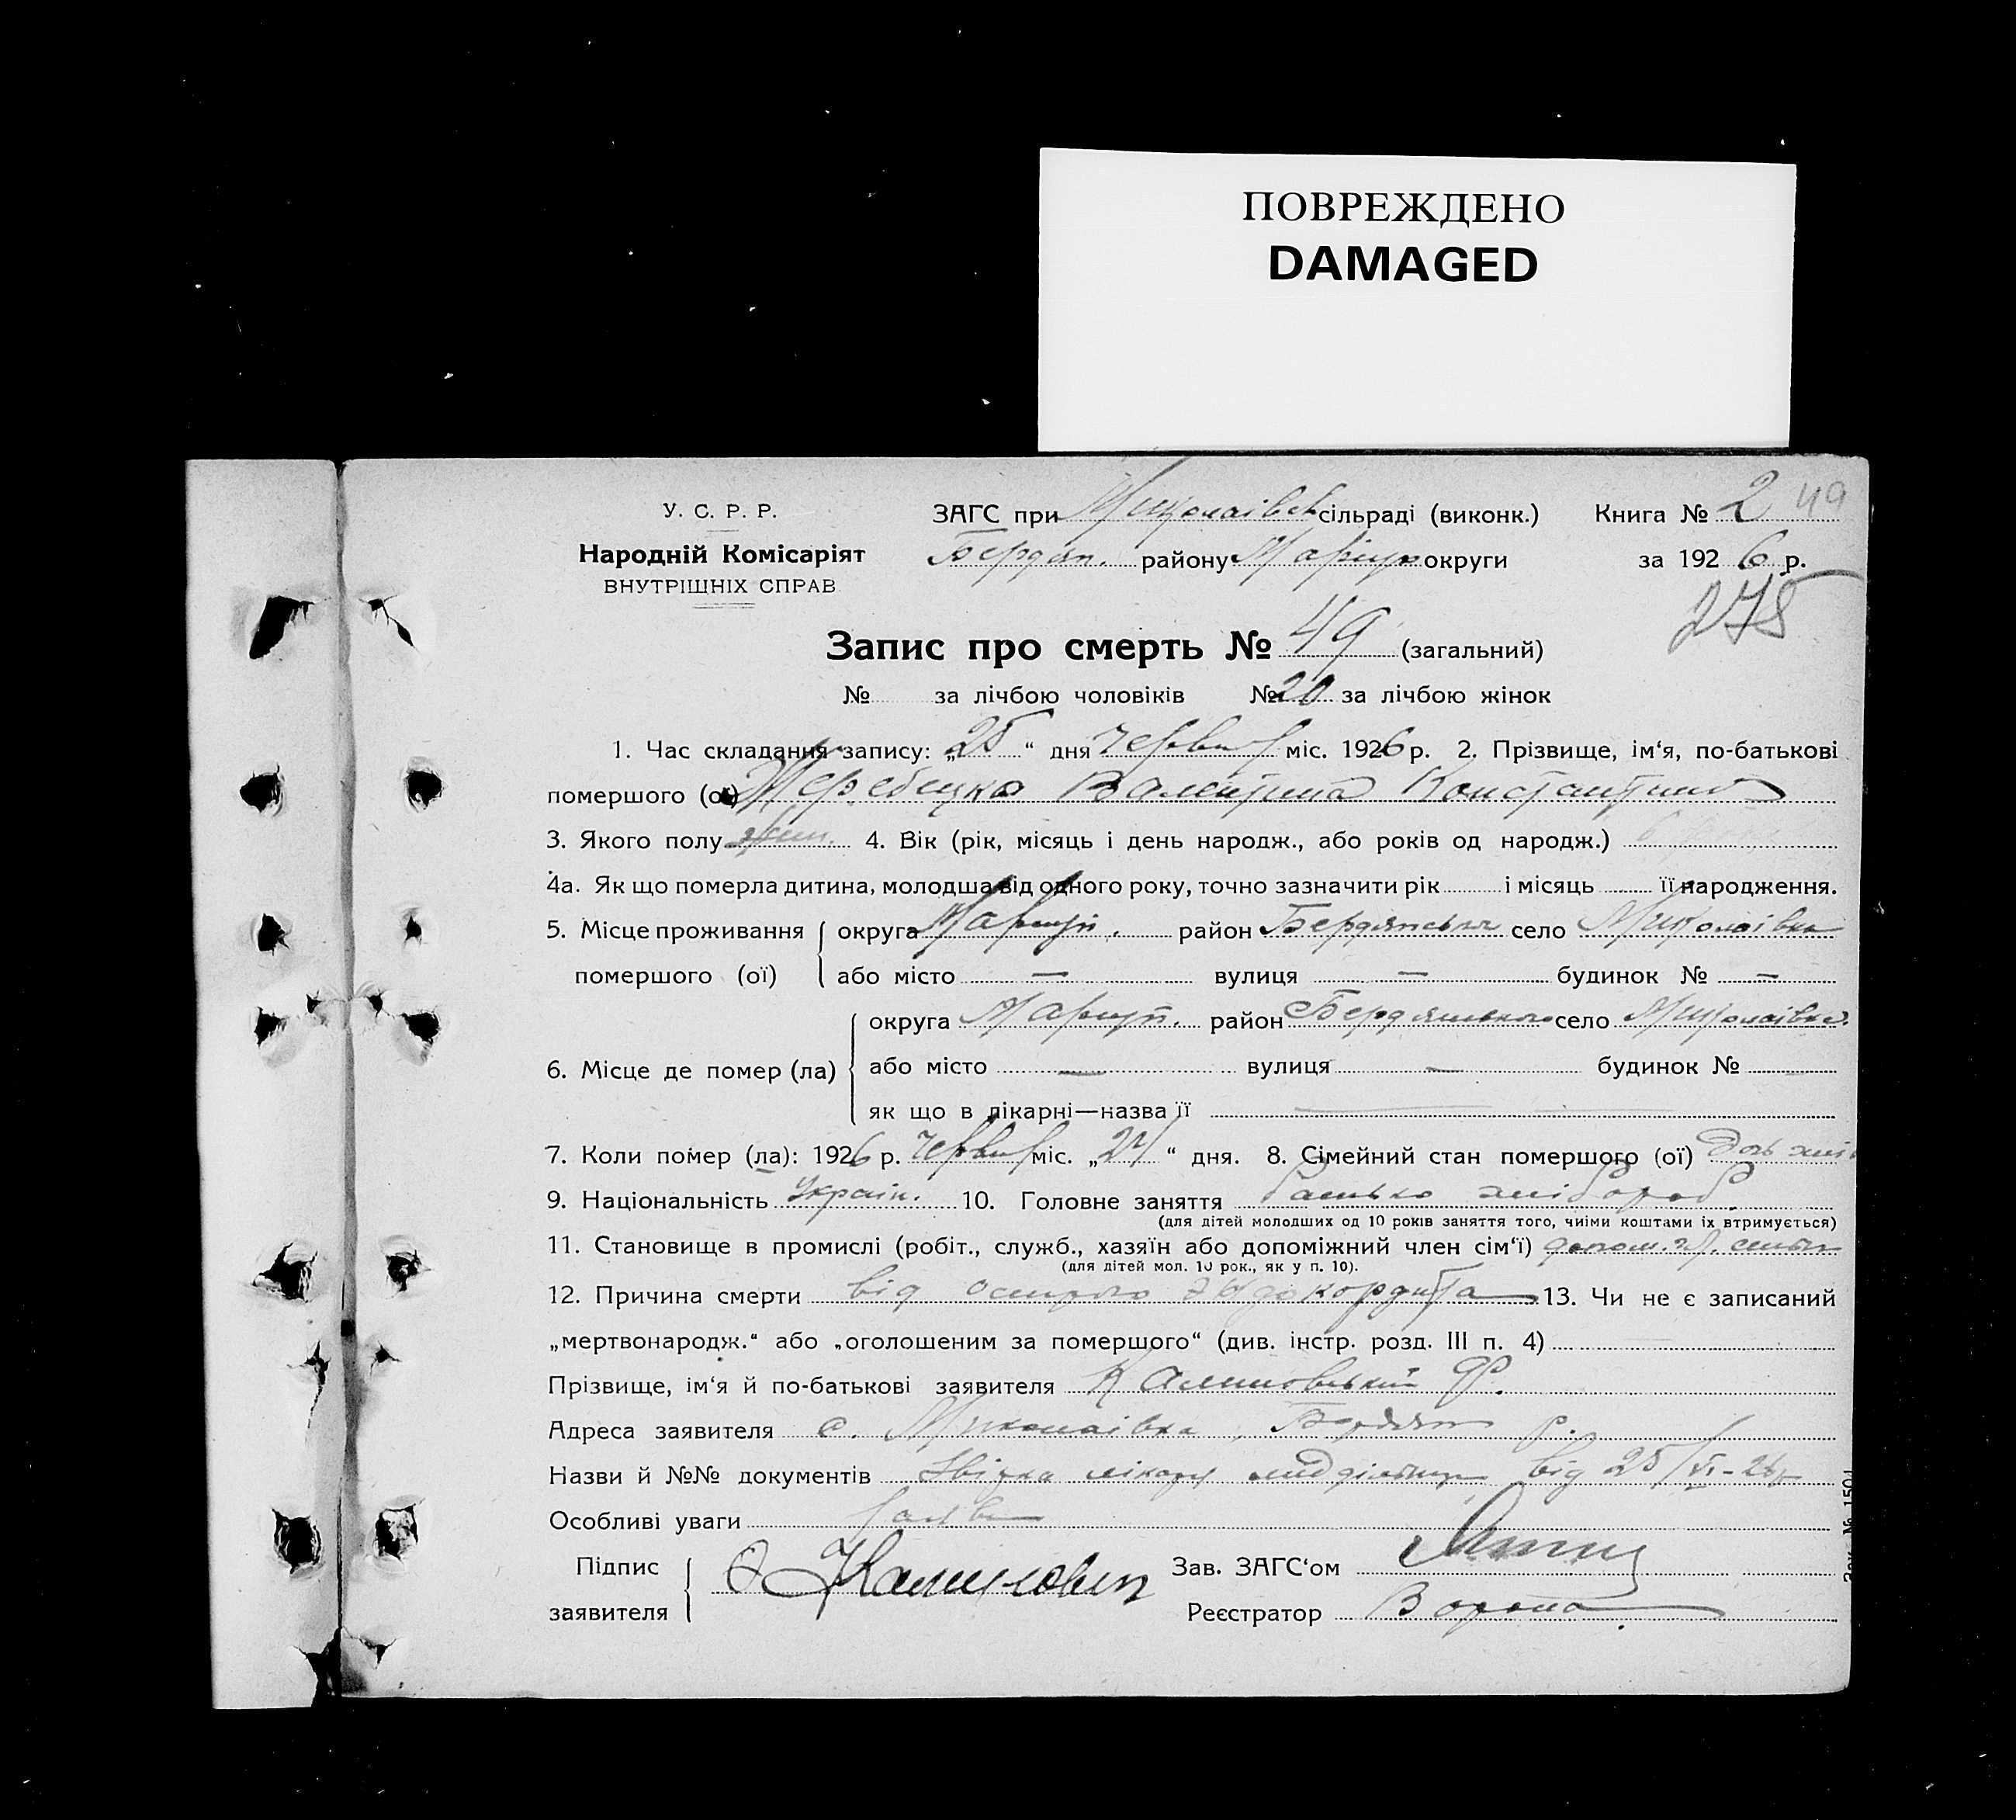 ПОВРЕЖДЕНО
DAMAGED
У. С. Р. Р.
Народній Комісаріят
ВНУТРІШНІХ СПРАВ
ЗАГС при Миколаївськ сільраді (виконк.) Книга № 2 49
Бердян. району Маріуп округи за 1926 р.
278
Запис про смерть № 49 (загальний)
№ за лічбою чоловіків № 20 за лічбою жінок
1. Час складання запису: „25“ дня червня міс. 1926 р. 2. Прізвище, ім‘я, по-батькові
помершого (ої) Жеребецка Валентина Константин
3. Якого полу жін. 4. Вік (рік, місяць і день народж., або років од народж.)
4а. Як що померла дитина, молодша від одного року, точно зазначити рік і місяць її народження.
5. Місце проживання помершого (ої) округа Маріуп. район Бердянськ село Миколаївка
або місто — вулиця — будинок № —
6. Місце де помер (ла) округа Маріуп. район Бердянського село Миколаївка
або місто — вулиця — будинок № —
як що в лікарні—назва її
7. Коли помер (ла): 1926 р. червня міс. „24“ дня. 8. Сімейний стан помершого (ої)
9. Національність Україн. 10. Головне заняття батько хлібороб
(для дітей молодших од 10 років заняття того, чиїми коштами їх втримується)
11. Становище в промислі (робіт., служб., хазяїн або допоміжний член сім‘ї) допом. чл. сімьи
(для дітей мол. 10 рок., як у п. 10).
12. Причина смерти від острого эндокордита 13. Чи не є записаний
„мертвонародж.“ або „оголошеним за помершого“ (див. інстр. розд. III п. 4)
Прізвище, ім‘я й по-батькові заявителя Калиновський Ф.
Адреса заявителя с. Миколаівка, Бердян р.
Назви й №№ документів Звідка лікаря від 25/VI-26 р
Особливі уваги
Підпис заявителя Калинович Зав. ЗАГС‘ом
Реєстратор Ворона
Зак. № 1504